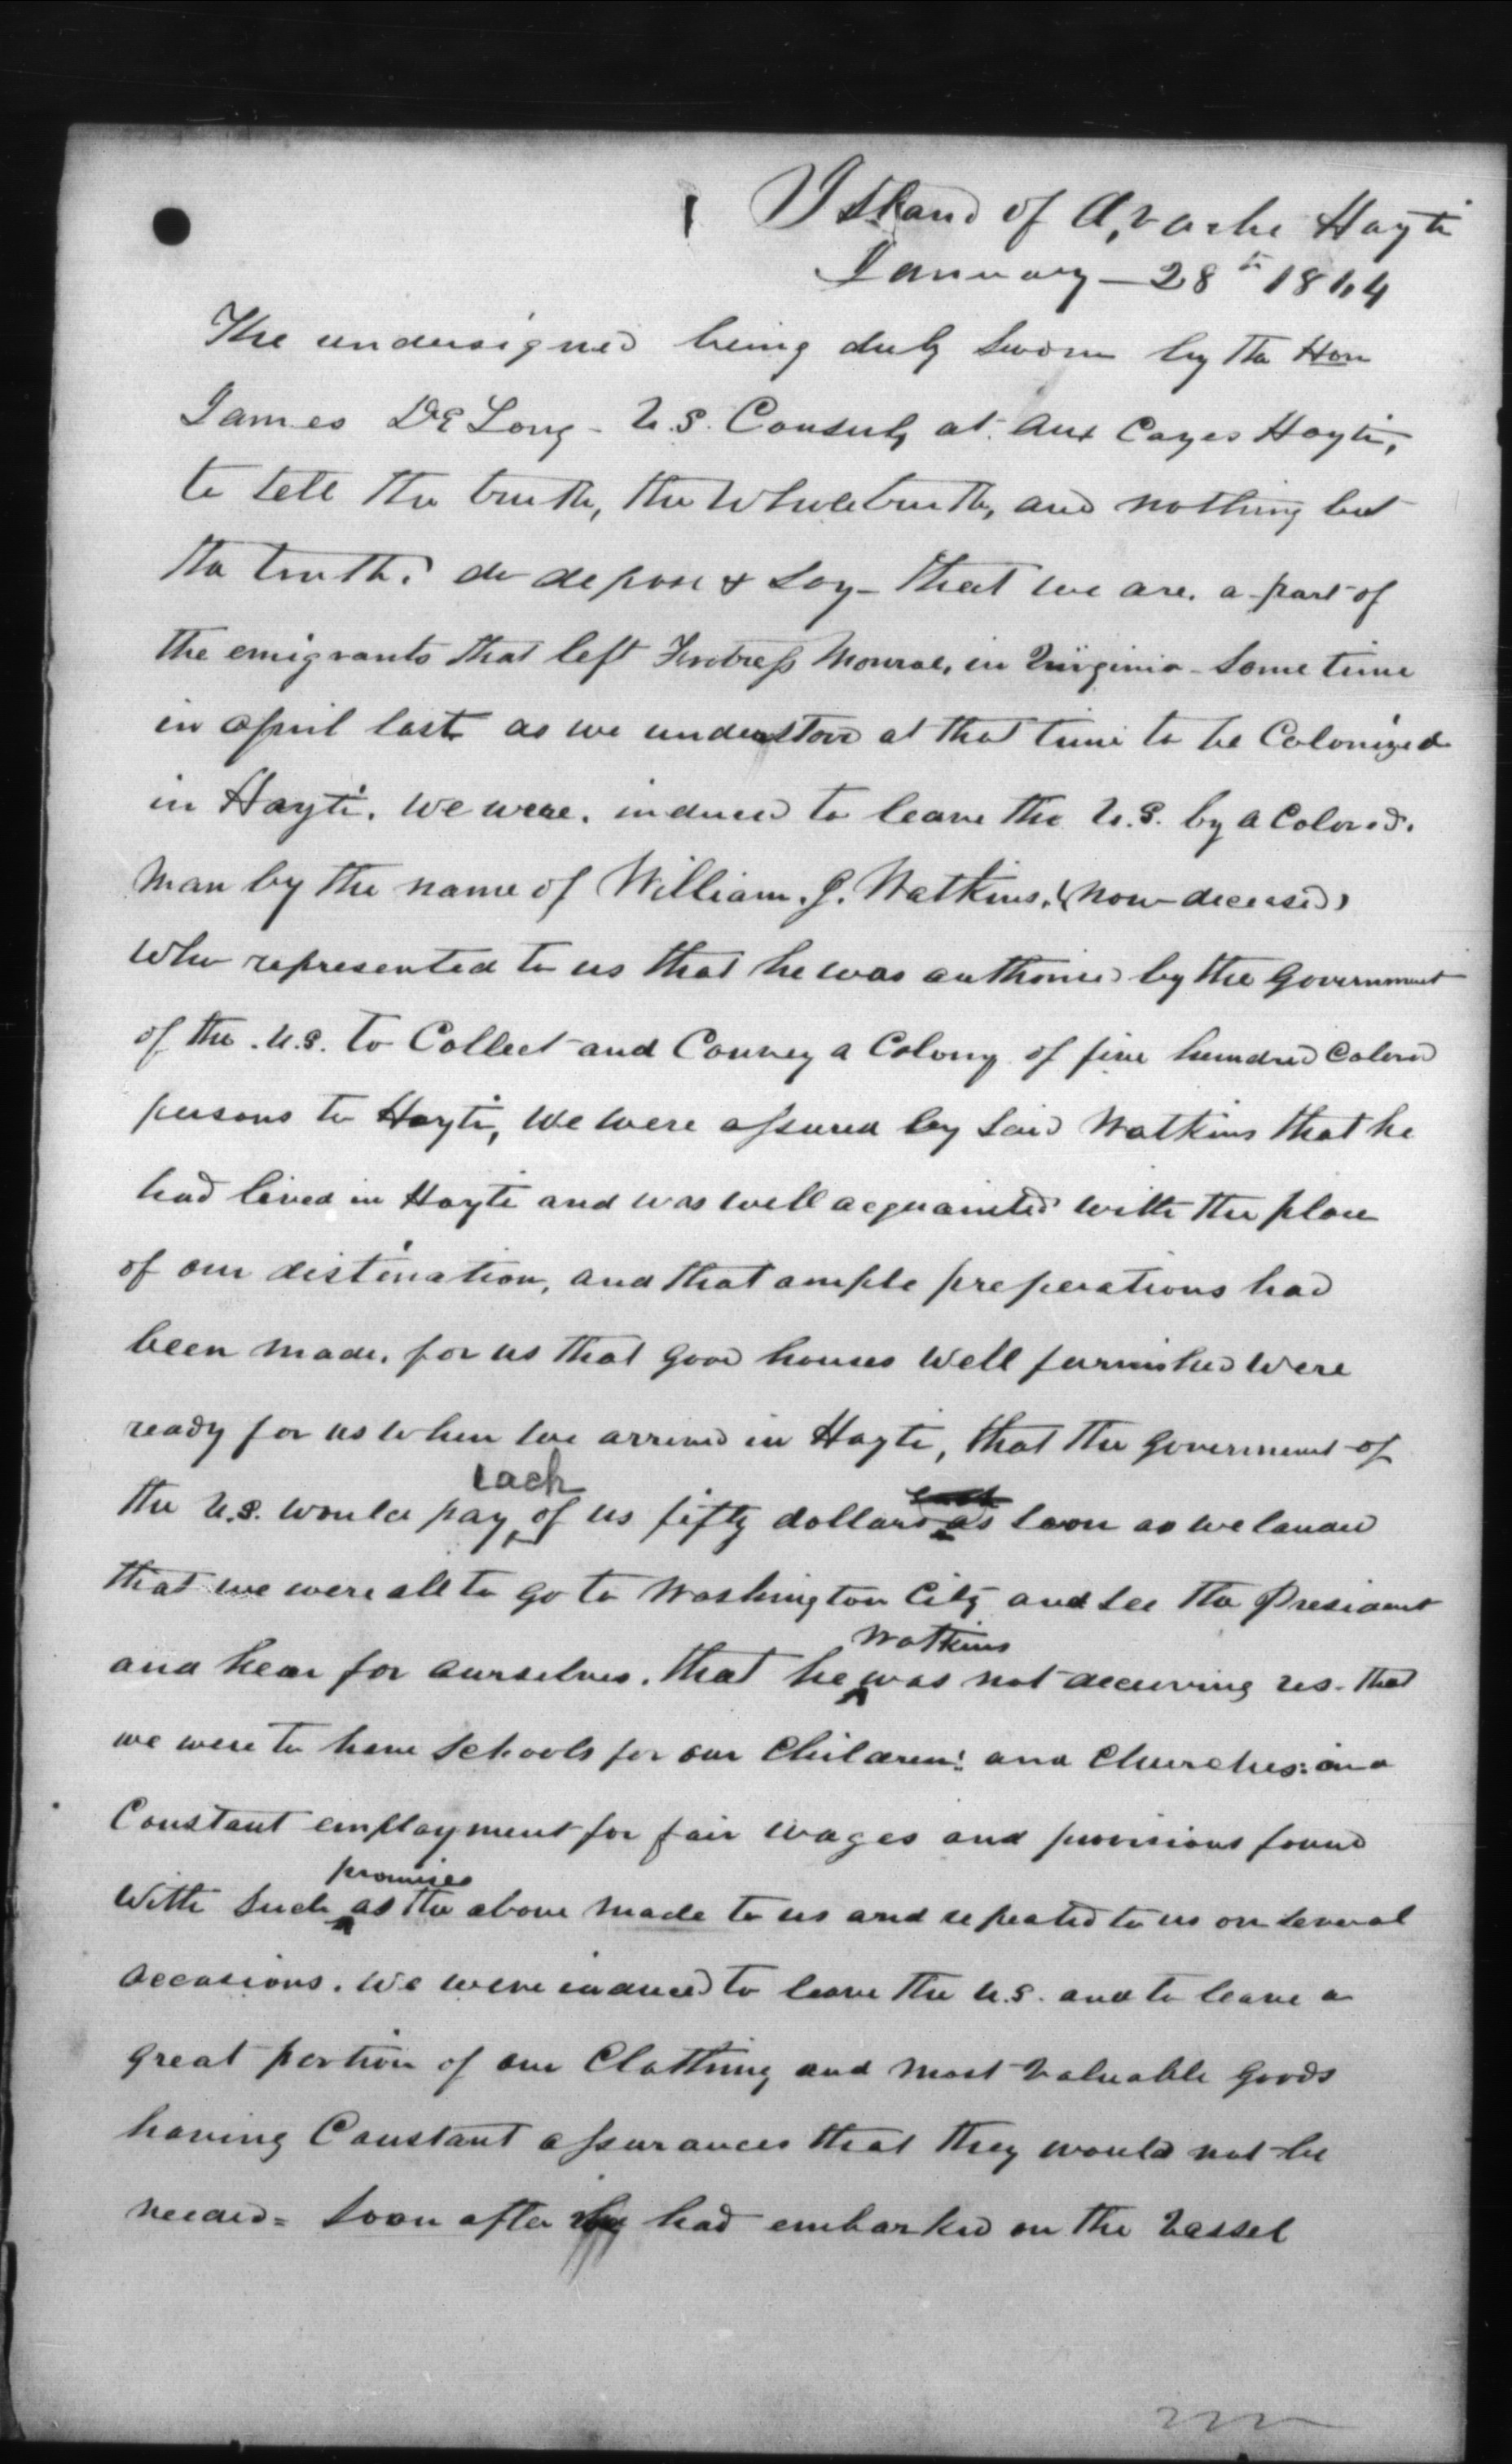 Island of A, vache Hayti
January - 28th 1864
The undersigned being duly sworn by the Hon
James De Long - U.S. Consul, at Aux Cayes Hayti,
to tell the truth, the whole truth, and nothing but
the truth, do depose & say - that we are, a part of
the emigrants that left Fortress Monroe, in Virginia - some time
in April last as we understood at that time to be Colonized
in Hayti. We were, induced to leave the U.S. by a Colored.
man by the name of William. J. Watkins, (now deceased)
who represented to us that he was authorized by the Government
of the U.S. to Collect and Convey a Colony of five hundred Colored
persons to Hayti, We were assured by said Watkins that he
had lived in Hayti and was well acquainted with the place
of our distination, and that ample preperations had
been made, for us that good houses well furnished were
ready for us when we arrived in Hayti, that the Government of
the U.S. would pay each of us fifty dollars as soon as we landed
that we were all to go to Washington City and see the President
and hear for ourselves. that he Watkins was not deceiving us. that
we were to have schools for our Children: and Churches: and
Constant employment for fair wages and provisions found
With such promises as the above made to us and repeated to us on several
occasions. We were induced to leave the U.S. and to leave a
great portion of our Clothing and most valuable goods
having Constant assurances that they would not be
needed = Soon after had embarked on the vassel